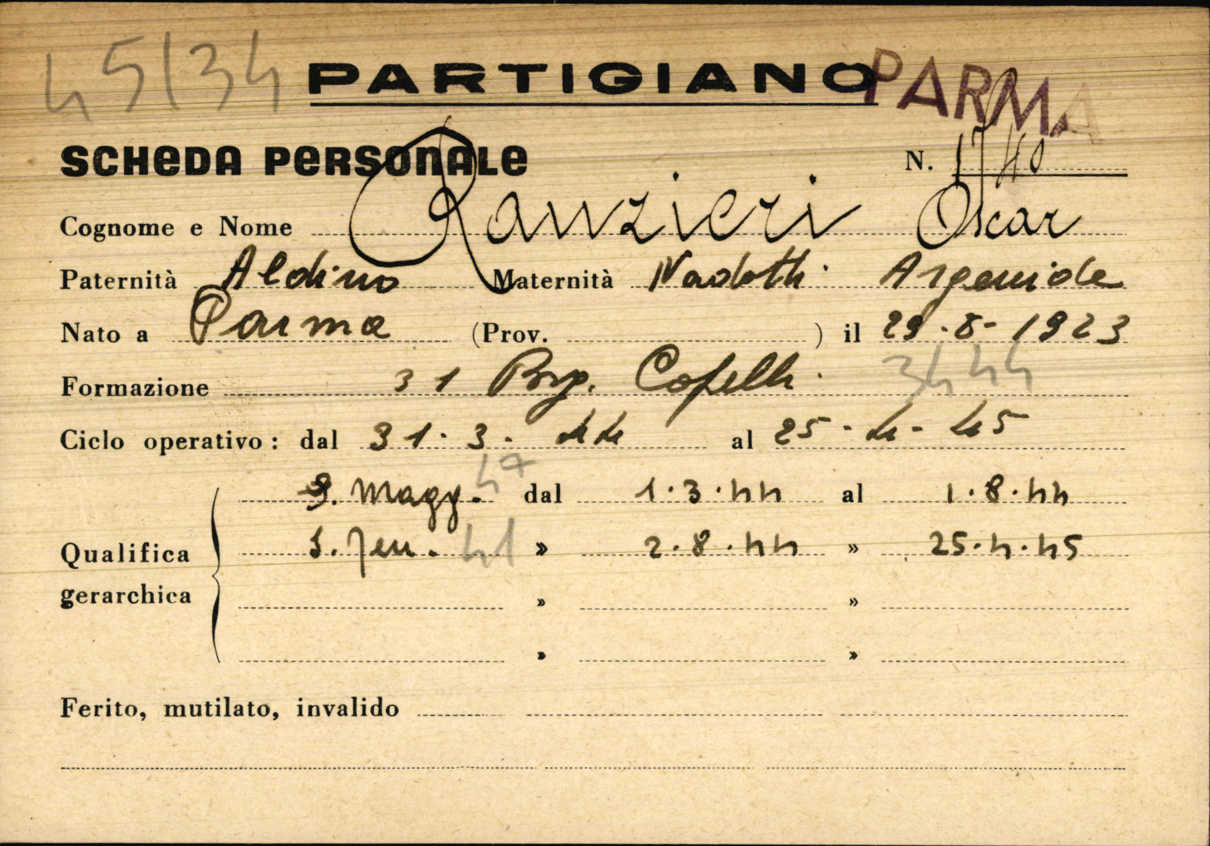 45134 PARTIGIANO PARMA
SCHEDA PERSONALE N. 1740
Cognome e Nome Ranzieri Oscar
Paternità Aldino Maternità Nadotti Argenide
Nato a Parma (Prov. ) il 29-8-1923
Formazione 31 Brg. Copelli. 3444
Ciclo operativo: dal 31.3.44 al 25-4-45
S. Magg. 47 dal 1.3.44 al 1.8.44
Qualifica S. Ten. 41 » 2.8.44 » 25.4.45
gerarchica » »
» »
Ferito, mutilato, invalido